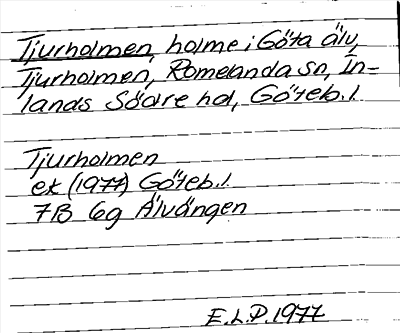 Tjurholmen, holme i Göta älv,
Tjurholmen, Romelanda sn, In-
lands Södre hd, Göteb. l.
Tjurholmen
ek (1977) Göteb. l.
7B 6g Älvängen
E.L.P. 1977